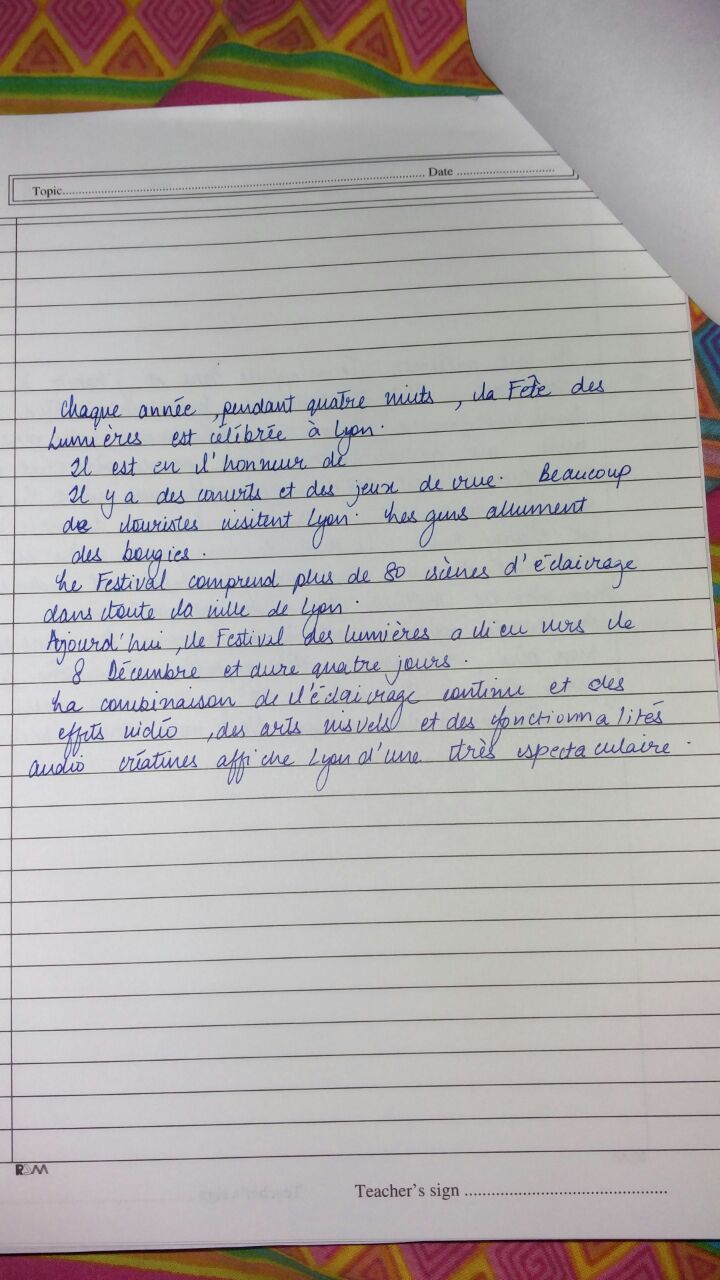 Topic.......... Date ..........
Chaque année, pendant quatre nuits, la Fête des
Lumières est célébrée à Lyon.
Il est en l'honneur de
Il y a des concerts et des jeux de rue. Beaucoup
de touristes visitent Lyon. Les gens allument
des bougies.
Le Festival comprend plus de 80 scènes d'éclairage
dans toute la ville de Lyon.
Ajourd'hui, le Festival des lumières a lieu vers le
8 Décembre et dure quatre jours.
La combinaison de l'éclairage continu et des
effets vidéo, des arts visuels et des fonctionnalités
audio créatives affiche Lyon d'une très spectaculaire.
Teacher's sign ..........